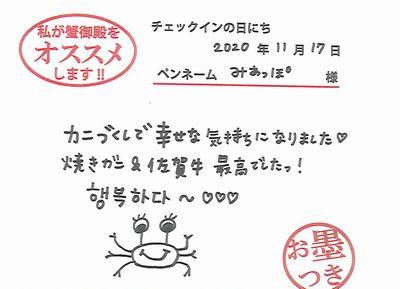 私が蟹御殿を
オススメ
します!!
チェックインの日にち
2020 年 11 月 17 日
ペンネーム みあっぽ 様
カニづくしで幸せな気持ちになりました♡
焼きガニ & 佐賀牛 最高でしたっ!
행복하다 ～ ♡♡♡
お墨
つき